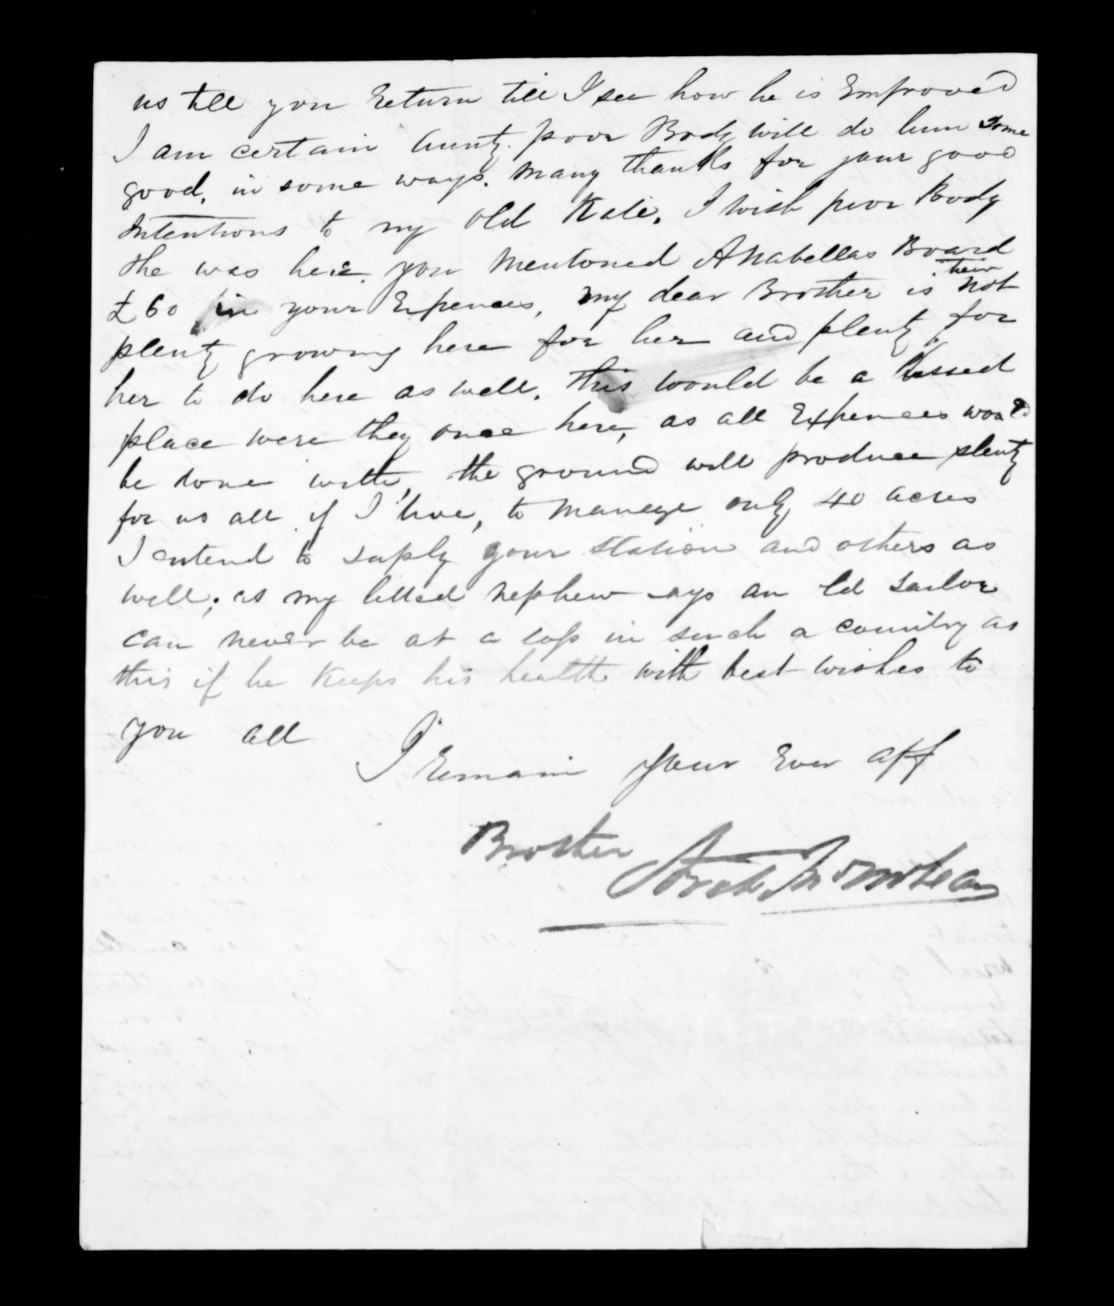 us till you Return till I see how he is Emproved
I am certain Aunty poor Body will do him some
good, in some ways. Many thanks for your good
Intentions to my Old Kate, I wish poor Body
she was here you Mentoned Anabellas Board
£60 in your Expences, my dear Brother is their not
plenty growing here for her and plenty for
her to do here as well, this would be a blessed
place were they once here, as all Expences would
be done with, the ground will produce plenty
for us all if I live, to Manage only 40 acres
I entend to suply your Station and others as
well; as my litted Nephew says an Old Sailor
can never be at a loss in such a country as
this if he Keeps his health with best wishes to
you all
I Remain your Ever aff
Brother Archd McLean